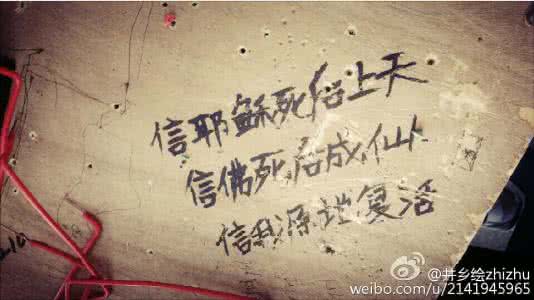 信耶稣死后上天
信佛死后成仙
信我源地复活
@井乡绘zhizhu
weibo.com/u/2141945965